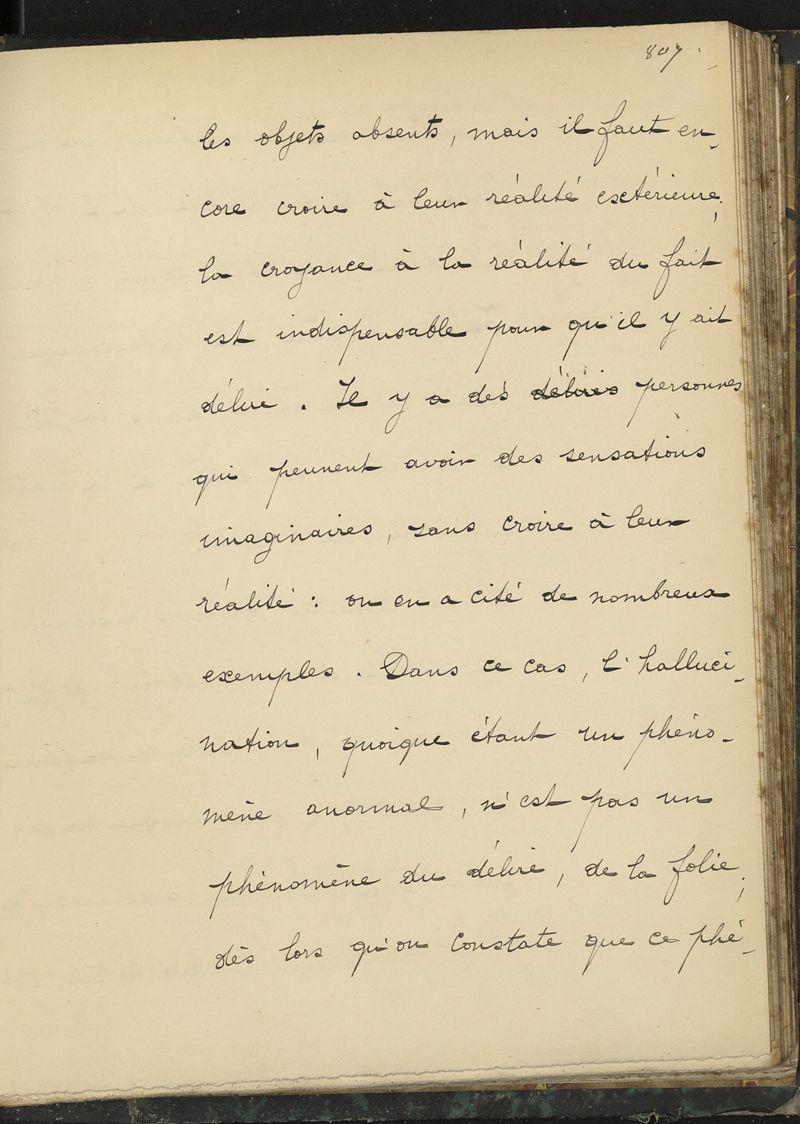 807.
les objets absents, mais il faut en-
core croire à leur réalité extérieure;
la croyance à la réalité du fait
est indispensable pour qu'il y ait
délire. Il y a des délires personnes
qui peuvent avoir des sensations
imaginaires, sans croire à leur
réalité : on en a cité de nombreux
exemples. Dans ce cas, l'halluci-
nation, quoique étant un phéno-
mène anormal, n'est pas un
phénomène du délire, de la folie;
dès lors qu'on constate que ce phé-